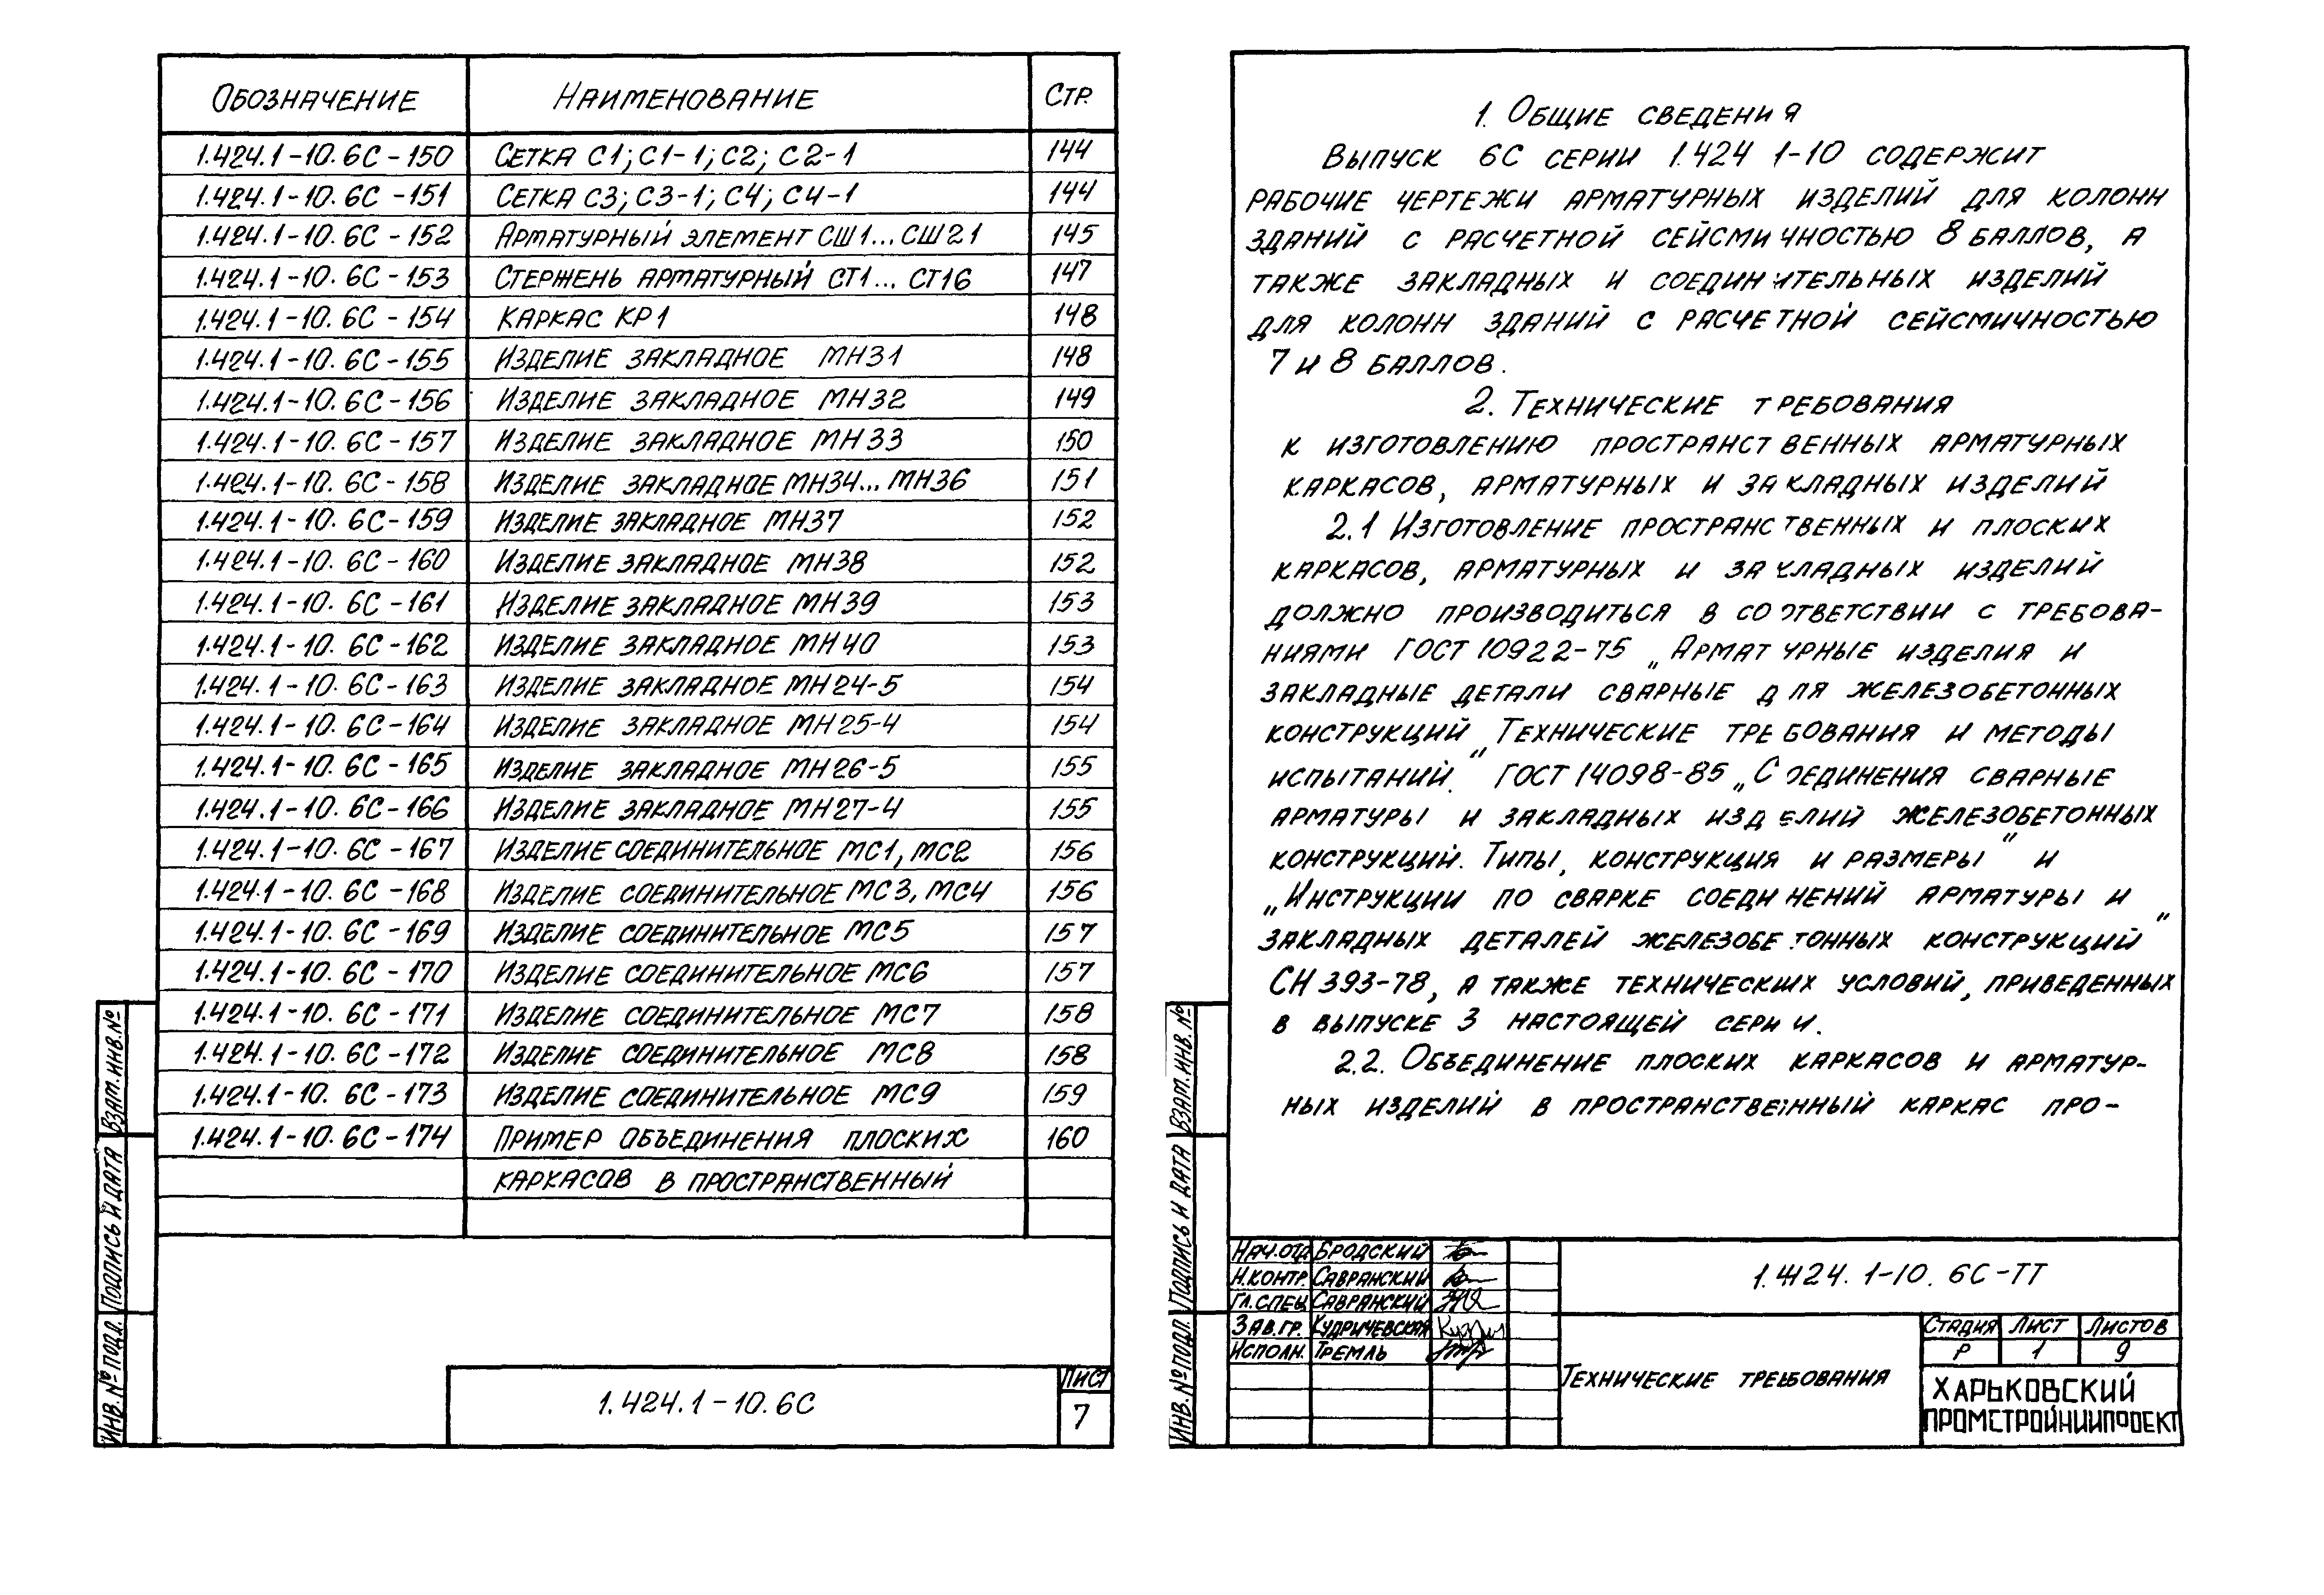 Обозначение Наименование Стр.
1.424.1-10.6С-150 Сетка С1; С1-1; С2; С2-1 144
1.424.1-10.6С-151 Сетка С3; С3-1; С4; С4-1 144
1.424.1-10.6С-152 Арматурный элемент СШ1...СШ21 145
1.424.1-10.6С-153 Стержень арматурный СТ1...СТ16 147
1.424.1-10.6С-154 Каркас КР1 148
1.424.1-10.6С-155 Изделие закладное МН31 148
1.424.1-10.6С-156 Изделие закладное МН32 149
1.424.1-10.6С-157 Изделие закладное МН33 150
1.424.1-10.6С-158 Изделие закладное МН34...МН36 151
1.424.1-10.6С-159 Изделие закладное МН37 152
1.424.1-10.6С-160 Изделие закладное МН38 152
1.424.1-10.6С-161 Изделие закладное МН39 153
1.424.1-10.6С-162 Изделие закладное МН40 153
1.424.1-10.6С-163 Изделие закладное МН24-5 154
1.424.1-10.6С-164 Изделие закладное МН25-4 154
1.424.1-10.6С-165 Изделие закладное МН26-5 155
1.424.1-10.6С-166 Изделие закладное МН27-4 155
1.424.1-10.6С-167 Изделие соединительное МС1, МС2 156
1.424.1-10.6С-168 Изделие соединительное МС3, МС4 156
1.424.1-10.6С-169 Изделие соединительное МС5 157
1.424.1-10.6С-170 Изделие соединительное МС6 157
1.424.1-10.6С-171 Изделие соединительное МС7 158
1.424.1-10.6С-172 Изделие соединительное МС8 158
1.424.1-10.6С-173 Изделие соединительное МС9 159
1.424.1-10.6С-174 Пример объединения плоских 160
каркасов в пространственный
Взам.инв.№
Подпись и дата
Инв.№подл.
1.424.1-10.6С
Лист
7
1. Общие сведения
Выпуск 6С серии 1.424 1-10 содержит
рабочие чертежи арматурных изделий для колонн
зданий с расчетной сейсмичностью 8 баллов, а
также закладных и соединительных изделий
для колонн зданий с расчетной сейсмичностью
7 и 8 баллов.
2. Технические требования
к изготовлению пространственных арматурных
каркасов, арматурных и закладных изделий
2.1 Изготовление пространственных и плоских
каркасов, арматурных и закладных изделий
должно производиться в соответствии с требова-
ниями ГОСТ 10922-75 „Арматурные изделия и
закладные детали сварные для железобетонных
конструкций Технические требования и методы
испытаний." ГОСТ 14098-85 „Соединения сварные
арматуры и закладных изделий железобетонных
конструкций. Типы, конструкция и размеры" и
„Инструкции по сварке соединений арматуры и
закладных деталей железобетонных конструкций"
СН 393-78, а также технических условий, приведенных
в выпуске 3 настоящей серии.
2.2. Объединение плоских каркасов и арматур-
ных изделий в пространственный каркас про-
Взам.инв.№
Подпись и дата
Инв.№подл.
Нач.отд Бродский
Н.контр. Савранский
Гл.спец Савранский
Зав.гр. Кудричевская
Исполн. Тремль
1.424.1-10.6С-ТТ
Технические требования
Стадия Лист Листов
Р 1 9
Харьковский
Промстройниипроект